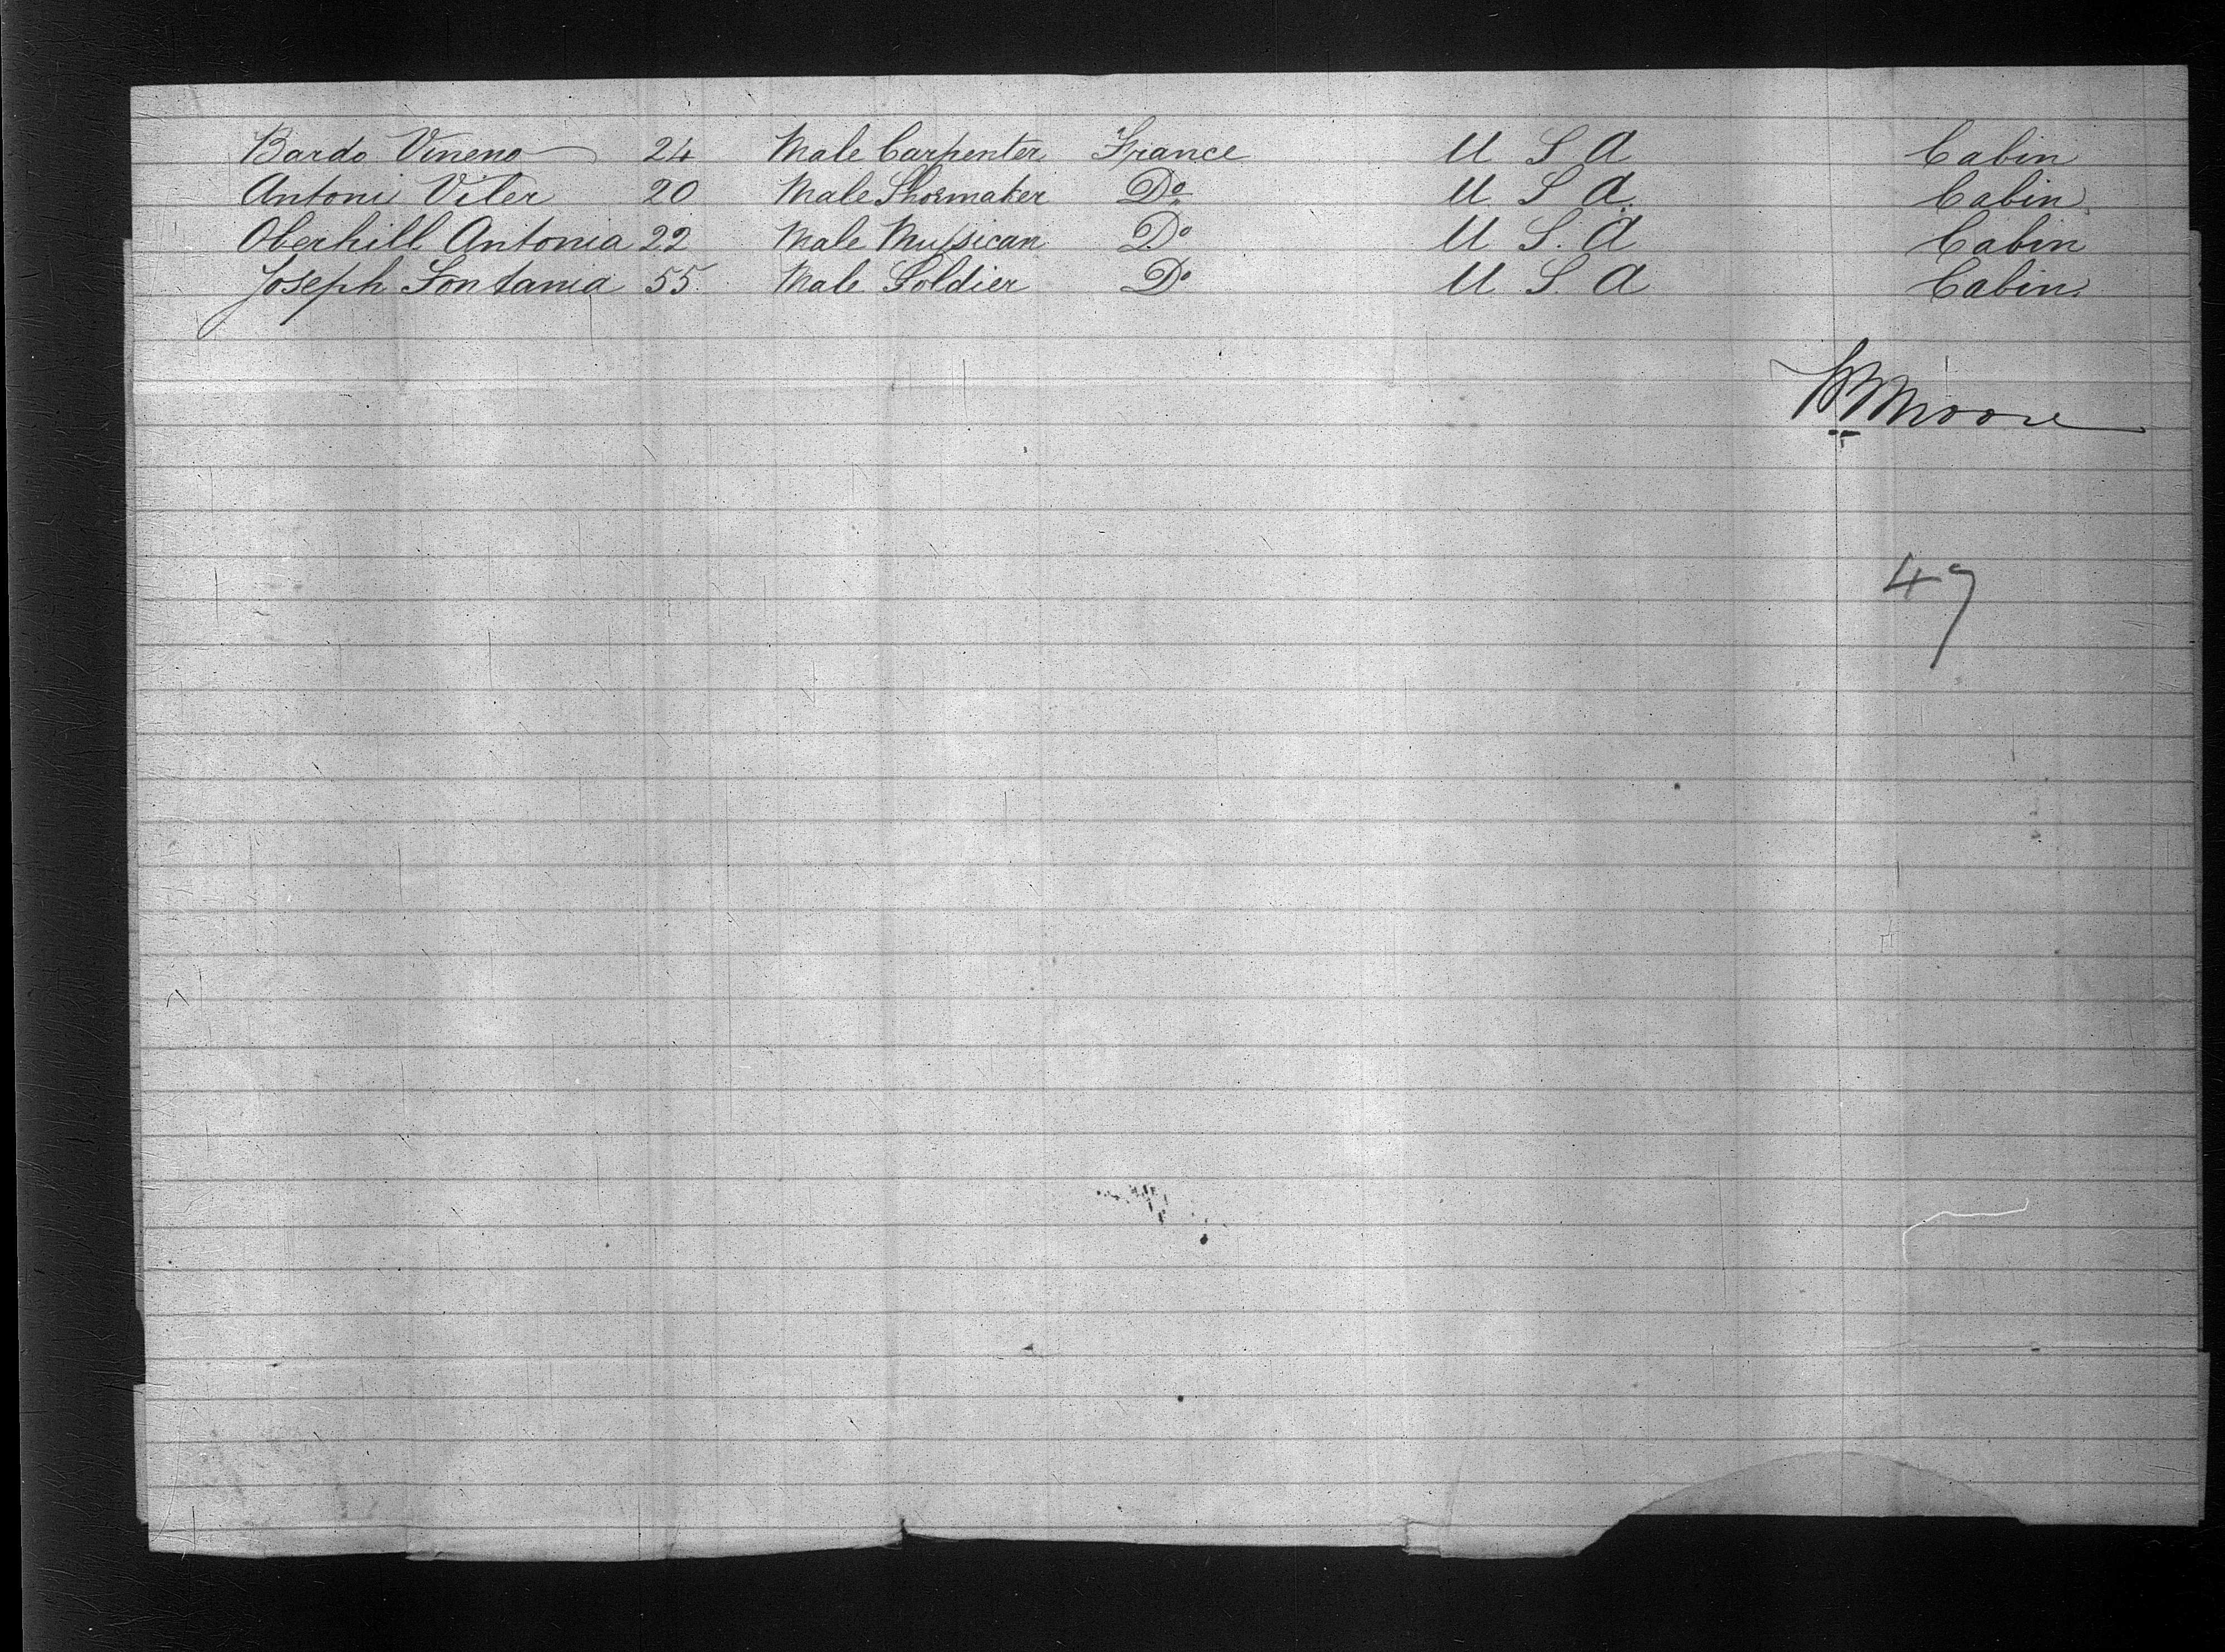 Bardo Vineno 24 Male Carpenter France U S A Cabin
Antoni Viler 20 Male Shoemaker Do U S A. Cabin
Oberhill Antonia 22 Male Mussican Do U S. A Cabin
Joseph Fontania 55. Male Soldier Do U. S. A Cabin.
Moore
47